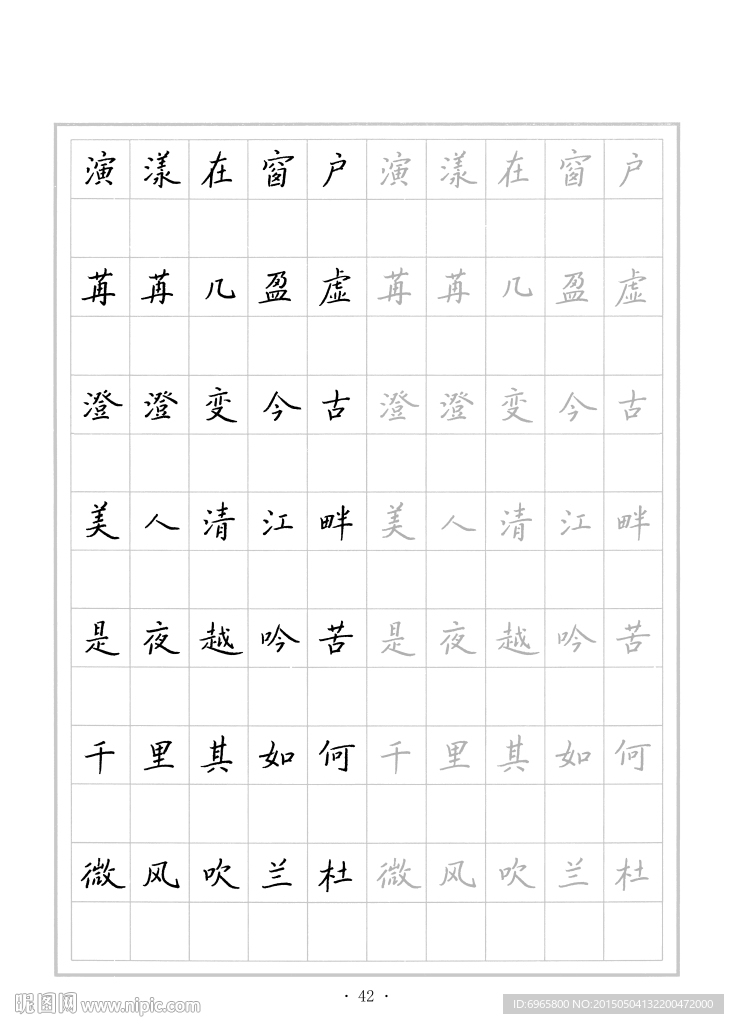 演漾在窗户演漾在窗户
苒苒几盈虚苒苒几盈虚
澄澄变今古澄澄变今古
美人清江畔美人清江畔
是夜越吟苦是夜越吟苦
千里其如何千里其如何
微风吹兰杜微风吹兰杜
· 42 ·
昵图网 www.nipic.com
ID:6965800 NO:20150504132200472000